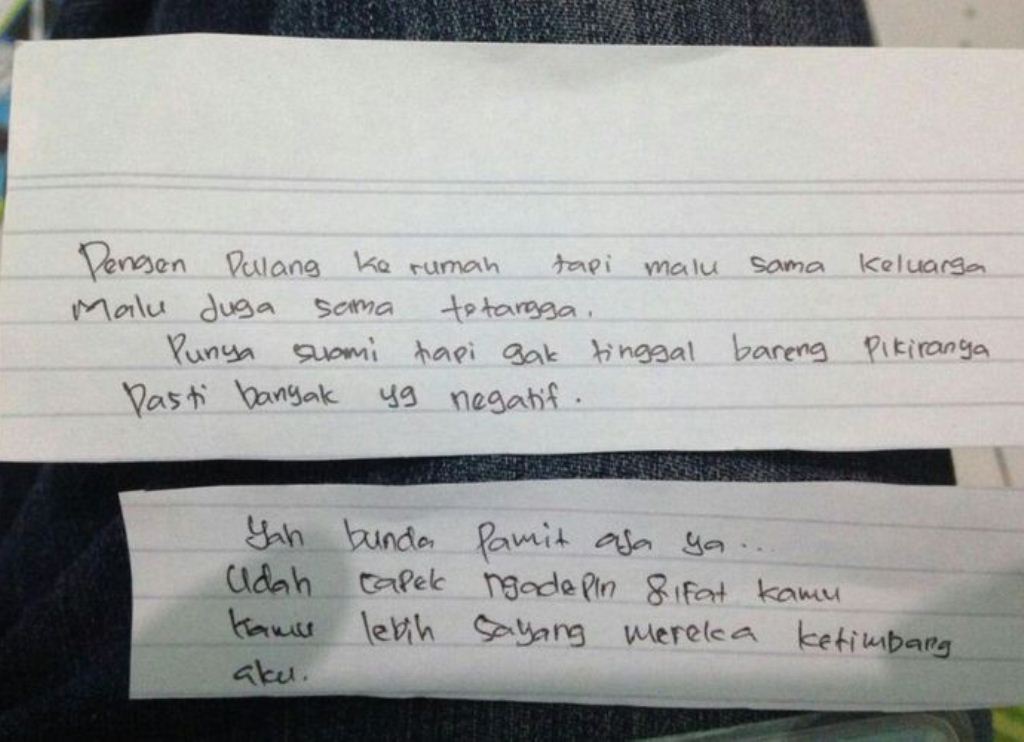 Pengen Pulang ke rumah tapi malu sama keluarga
Malu juga sama tetangga.
Punya suami tapi gak tinggal bareng Pikiranya
Pasti banyak yg negatif.
Yah bunda Pamit aja ya...
Udah capek ngadepin sifat kamu
kamu lebih sayang mereka ketimbang
aku.